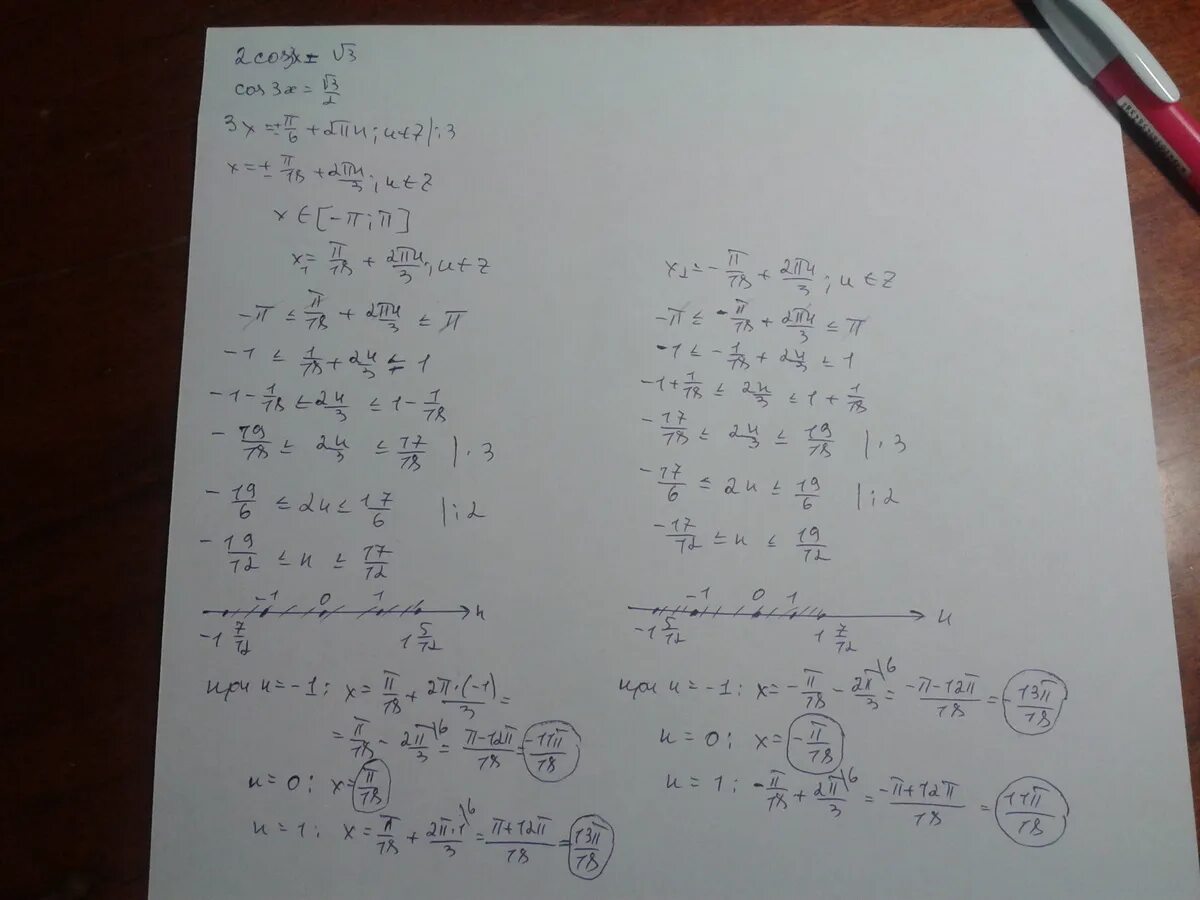 2cos3x = √3
cos3x = √3/2
3x = ± π/6 + 2πn; n∈Z |:3
x = ± π/18 + 2πn/3; n∈Z
x ∈ [-π; π]
x₁ = π/18 + 2πn/3; n∈Z
-π ≤ π/18 + 2πn/3 ≤ π
-1 ≤ 1/18 + 2n/3 ≤ 1
-1 - 1/18 ≤ 2n/3 ≤ 1 - 1/18
-19/18 ≤ 2n/3 ≤ 17/18 |·3
-19/6 ≤ 2n ≤ 17/6 |:2
-19/12 ≤ n ≤ 17/12
-1 0 1 n
-1 7/12 1 5/12
при n = -1: x = π/18 + 2π·(-1)/3 =
= π/18 - 2π/3 \6 = π-12π/18 = -11π/18
n = 0: x = π/18
n = 1: x = π/18 + 2π·1/3 \6 = π+12π/18 = 13π/18
x₂ = -π/18 + 2πn/3; n∈Z
-π ≤ -π/18 + 2πn/3 ≤ π
-1 ≤ -1/18 + 2n/3 ≤ 1
-1 + 1/18 ≤ 2n/3 ≤ 1 + 1/18
-17/18 ≤ 2n/3 ≤ 19/18 |·3
-17/6 ≤ 2n ≤ 19/6 |:2
-17/12 ≤ n ≤ 19/12
-1 0 1 n
-1 5/12 1 7/12
при n = -1: x = -π/18 - 2π/3 \6 = -π-12π/18 = -13π/18
n = 0: x = -π/18
n = 1: -π/18 + 2π/3 \6 = -π+12π/18 = 11π/18